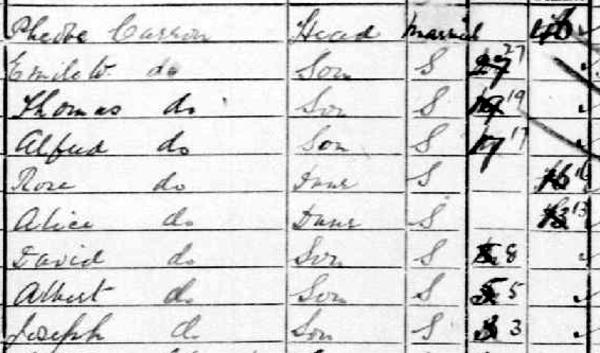 Phoebe Carron Head Married 46
Emile W do Son S 27 27
Thomas do Son S 19 19
Alfred do Son S 17 17
Rose do Daur S 16 16
Alice do Daur S 13 13
David do Son S 8 8
Albert do Son S 5 5
Joseph do Son S 3 3